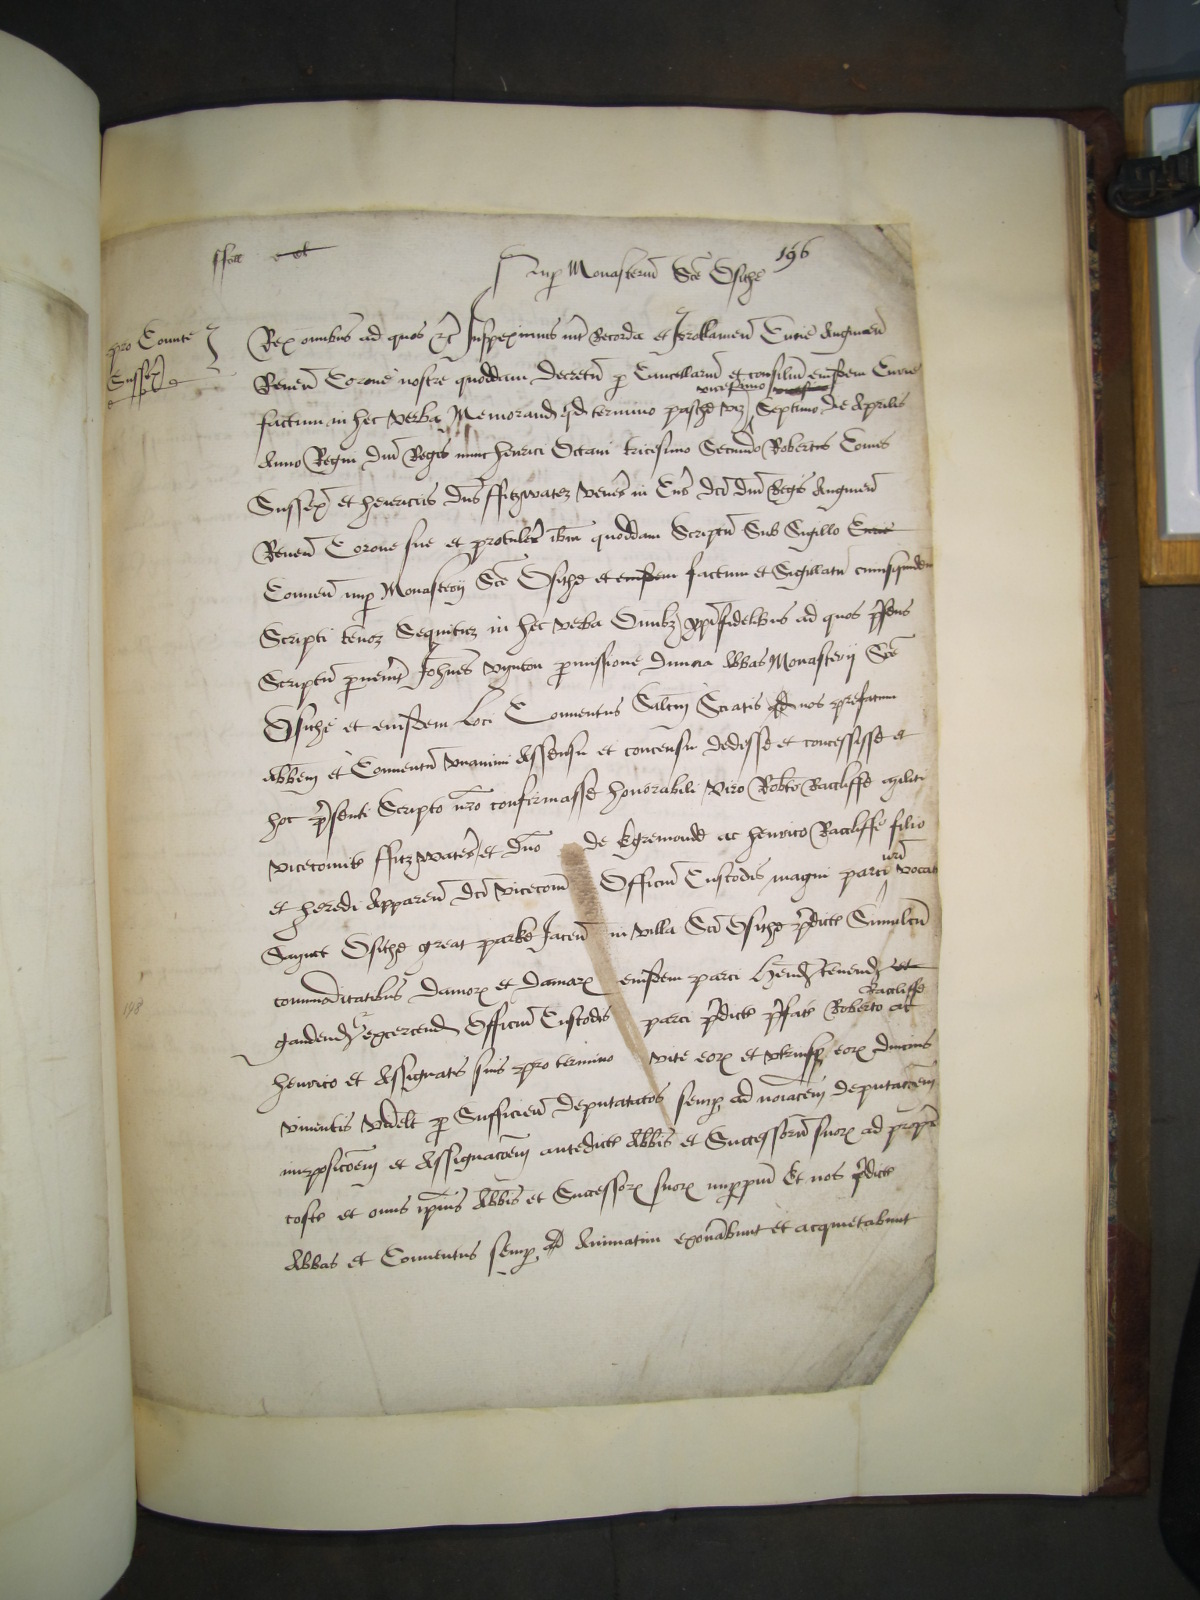 nup Monasteriu Sce Osithe
196
pro Comite
Sussex
Rex omnibus ad quos &c Inspeximus int Recorda et Irrotlamen Curie Augmen
Reuen Corone nostre quoddam Decretu p Cancellariu et consiliu eiusdem Curie
vicesimo
factum in hec verba Memorand qd termino pasche viz Septimo die Aprilis
Anno Regni Dni Regis nunc henrici Octaui tricesimo Secundo Robertus Comes
Sussex et henricus Dns ffitzwater vener in Cur dci Dni Regis Augmen
Reuen Corone sue et protuler ibm quoddam Scriptu Sub Sigillo
Conuen nup Monasterij Sce Osithe et factum et Sigillatu cuiusquidem
Scripti tenor Sequitur in hec verba Omibz xpi fidelibus ad quos psens
Scriptu puenerit Johnes vynton pmissione diuina Abbas Monasterij Sce
Osithe et eiusdem loci Conuentus Saltm Sciatis nos prefatum
Abbem et Conuentu vnanimi Assensu et concensu dedisse et concessisse et
hoc psenti Scripto nro confirmasse honorabili viro Robto Raccliffe militi
vicecomiti ffitzwater et dno de Egremonde ac henrico Raccliffe filio
et heredi Apparen dci vicecom Officiu Custodis magni parci nri vocat
Osithe great parke Jacen in villa Sci Osithe pdicte Simulcu
commoditatibus Damor et Damar eiusdem parci hend tenend
Raccliffe
gaudend excercend Officiu Custodis parci pdicte pfate Roberto ac
henrico et Assignatis suis pro termino vite eor et vtriusq eor diucius
viuentis videlt p Sufficien deputatos semp ad noiacem deputacem
impposicoem et Assignacoem antedicte Abbis et Successoru suor ad propr
coste et onus ipius Abbis et Successor suor imppm Et nos pdicte
Abbas et Conuentus semp Ad exonabunt et acquietabunt
148